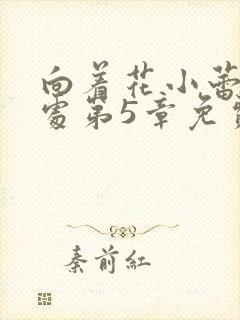 向着花小蕾
处第5章免
秦前红